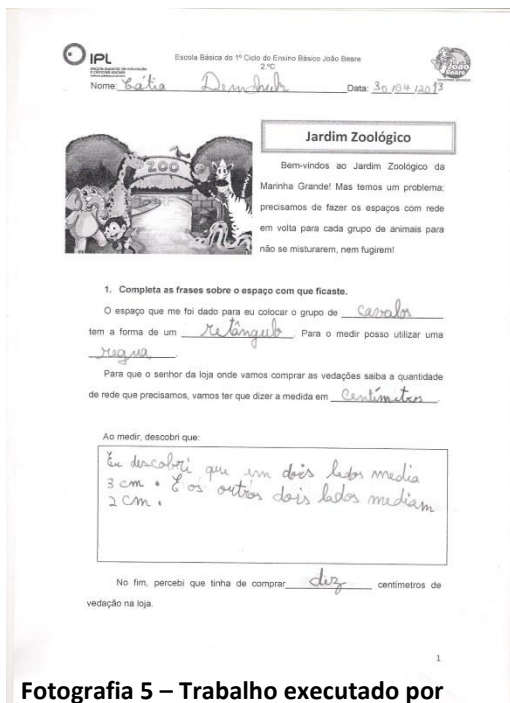 IPL
Escola Básica do 1º Ciclo do Ensino Básico João Beare
2.ºC
Nome: Cátia Data: 30/04/2013
ZOO
Jardim Zoológico
Bem-vindos ao Jardim Zoológico da
Marinha Grande! Mas temos um problema:
precisamos de fazer os espaços com rede
em volta para cada grupo de animais para
não se misturarem, nem fugirem!
1. Completa as frases sobre o espaço com que ficaste.
O espaço que me foi dado para eu colocar o grupo de cavalos
tem a forma de um retângulo. Para o medir posso utilizar uma
regua.
Para que o senhor da loja onde vamos comprar as vedações saiba a quantidade
de rede que precisamos, vamos ter que dizer a medida em centímetros.
Ao medir, descobri que:
Eu descobri que em dois lados media
3 cm. E os outros dois lados mediam
2 cm.
No fim, percebi que tinha de comprar dez centímetros de
vedação na loja.
1
Fotografia 5 – Trabalho executado por